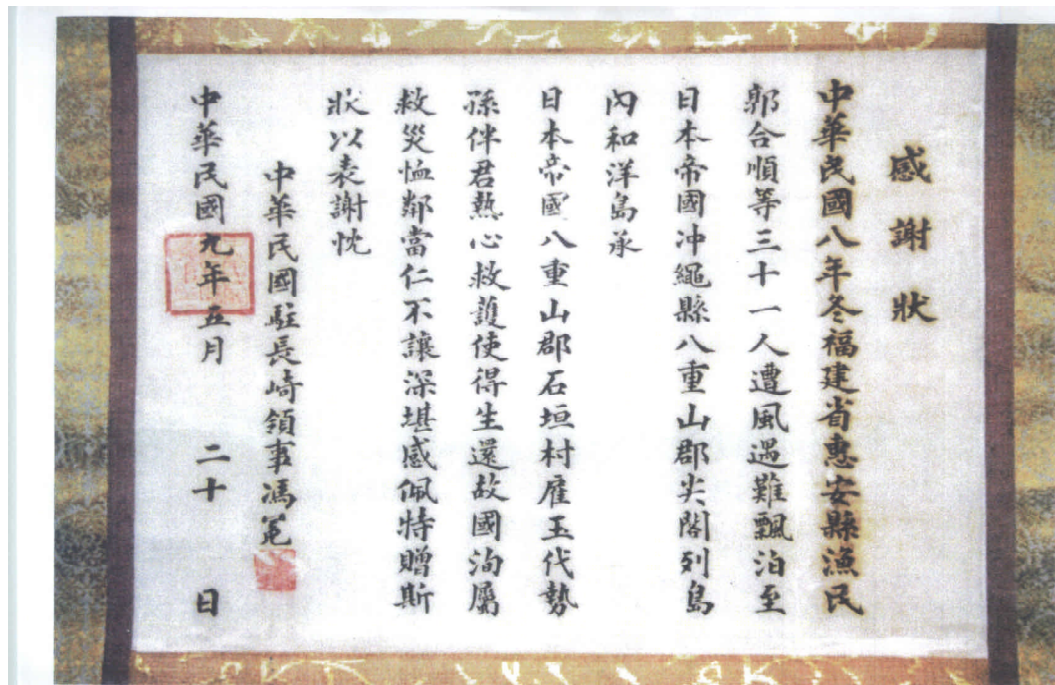 感謝狀
中華民國八年冬福建省惠安縣漁民
郭合順等三十一人遭風遇難飄泊至
日本帝國沖繩縣八重山郡尖閣列島
內和洋島承
日本帝國八重山郡石垣村雇玉代勢
孫伴君熱心救護使得生還故國洵屬
救災恤鄰當仁不讓深堪感佩特贈斯
狀以表謝忱
中華民國駐長崎領事馮冕
中華民國九年五月二十日